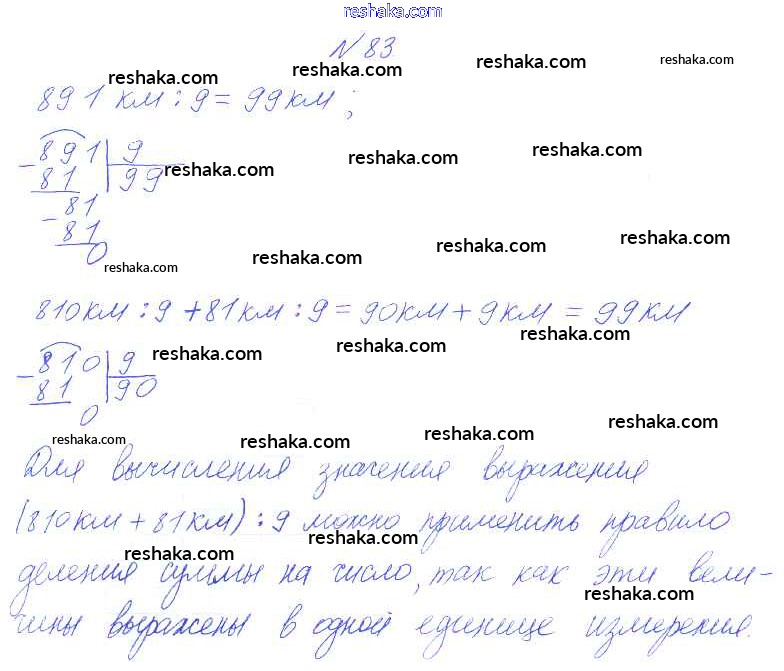 reshaka.com
N 83
reshaka.com reshaka.com reshaka.com reshaka.com
891 км : 9 = 99 км ;
- 891 | 9
81 | 99
reshaka.com reshaka.com reshaka.com
- 81
81
0
reshaka.com reshaka.com reshaka.com reshaka.com
810 км : 9 + 81 км : 9 = 90 км + 9 км = 99 км
reshaka.com reshaka.com reshaka.com
- 810 | 9
81 | 90
0
reshaka.com reshaka.com reshaka.com reshaka.com
Для вычисления значения выражения
(810 км + 81 км) : 9 можно применить правило
reshaka.com reshaka.com
деления суммы на число, так как эти вели-
reshaka.com reshaka.com
чины выражены в одной единице измерения.